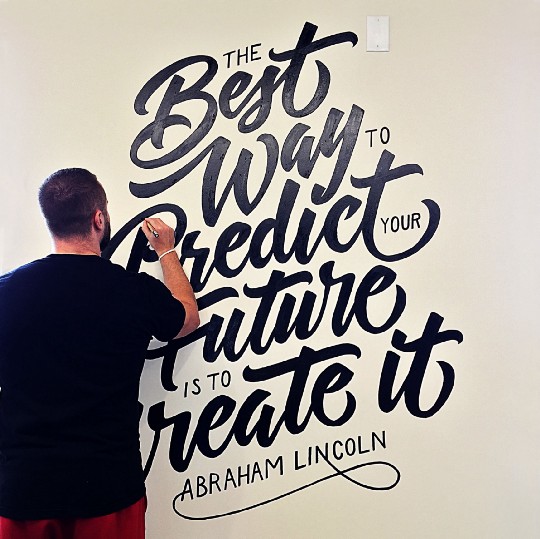 THE
Best
Way TO
Predict
YOUR
Future
IS TO
Create it
ABRAHAM LINCOLN